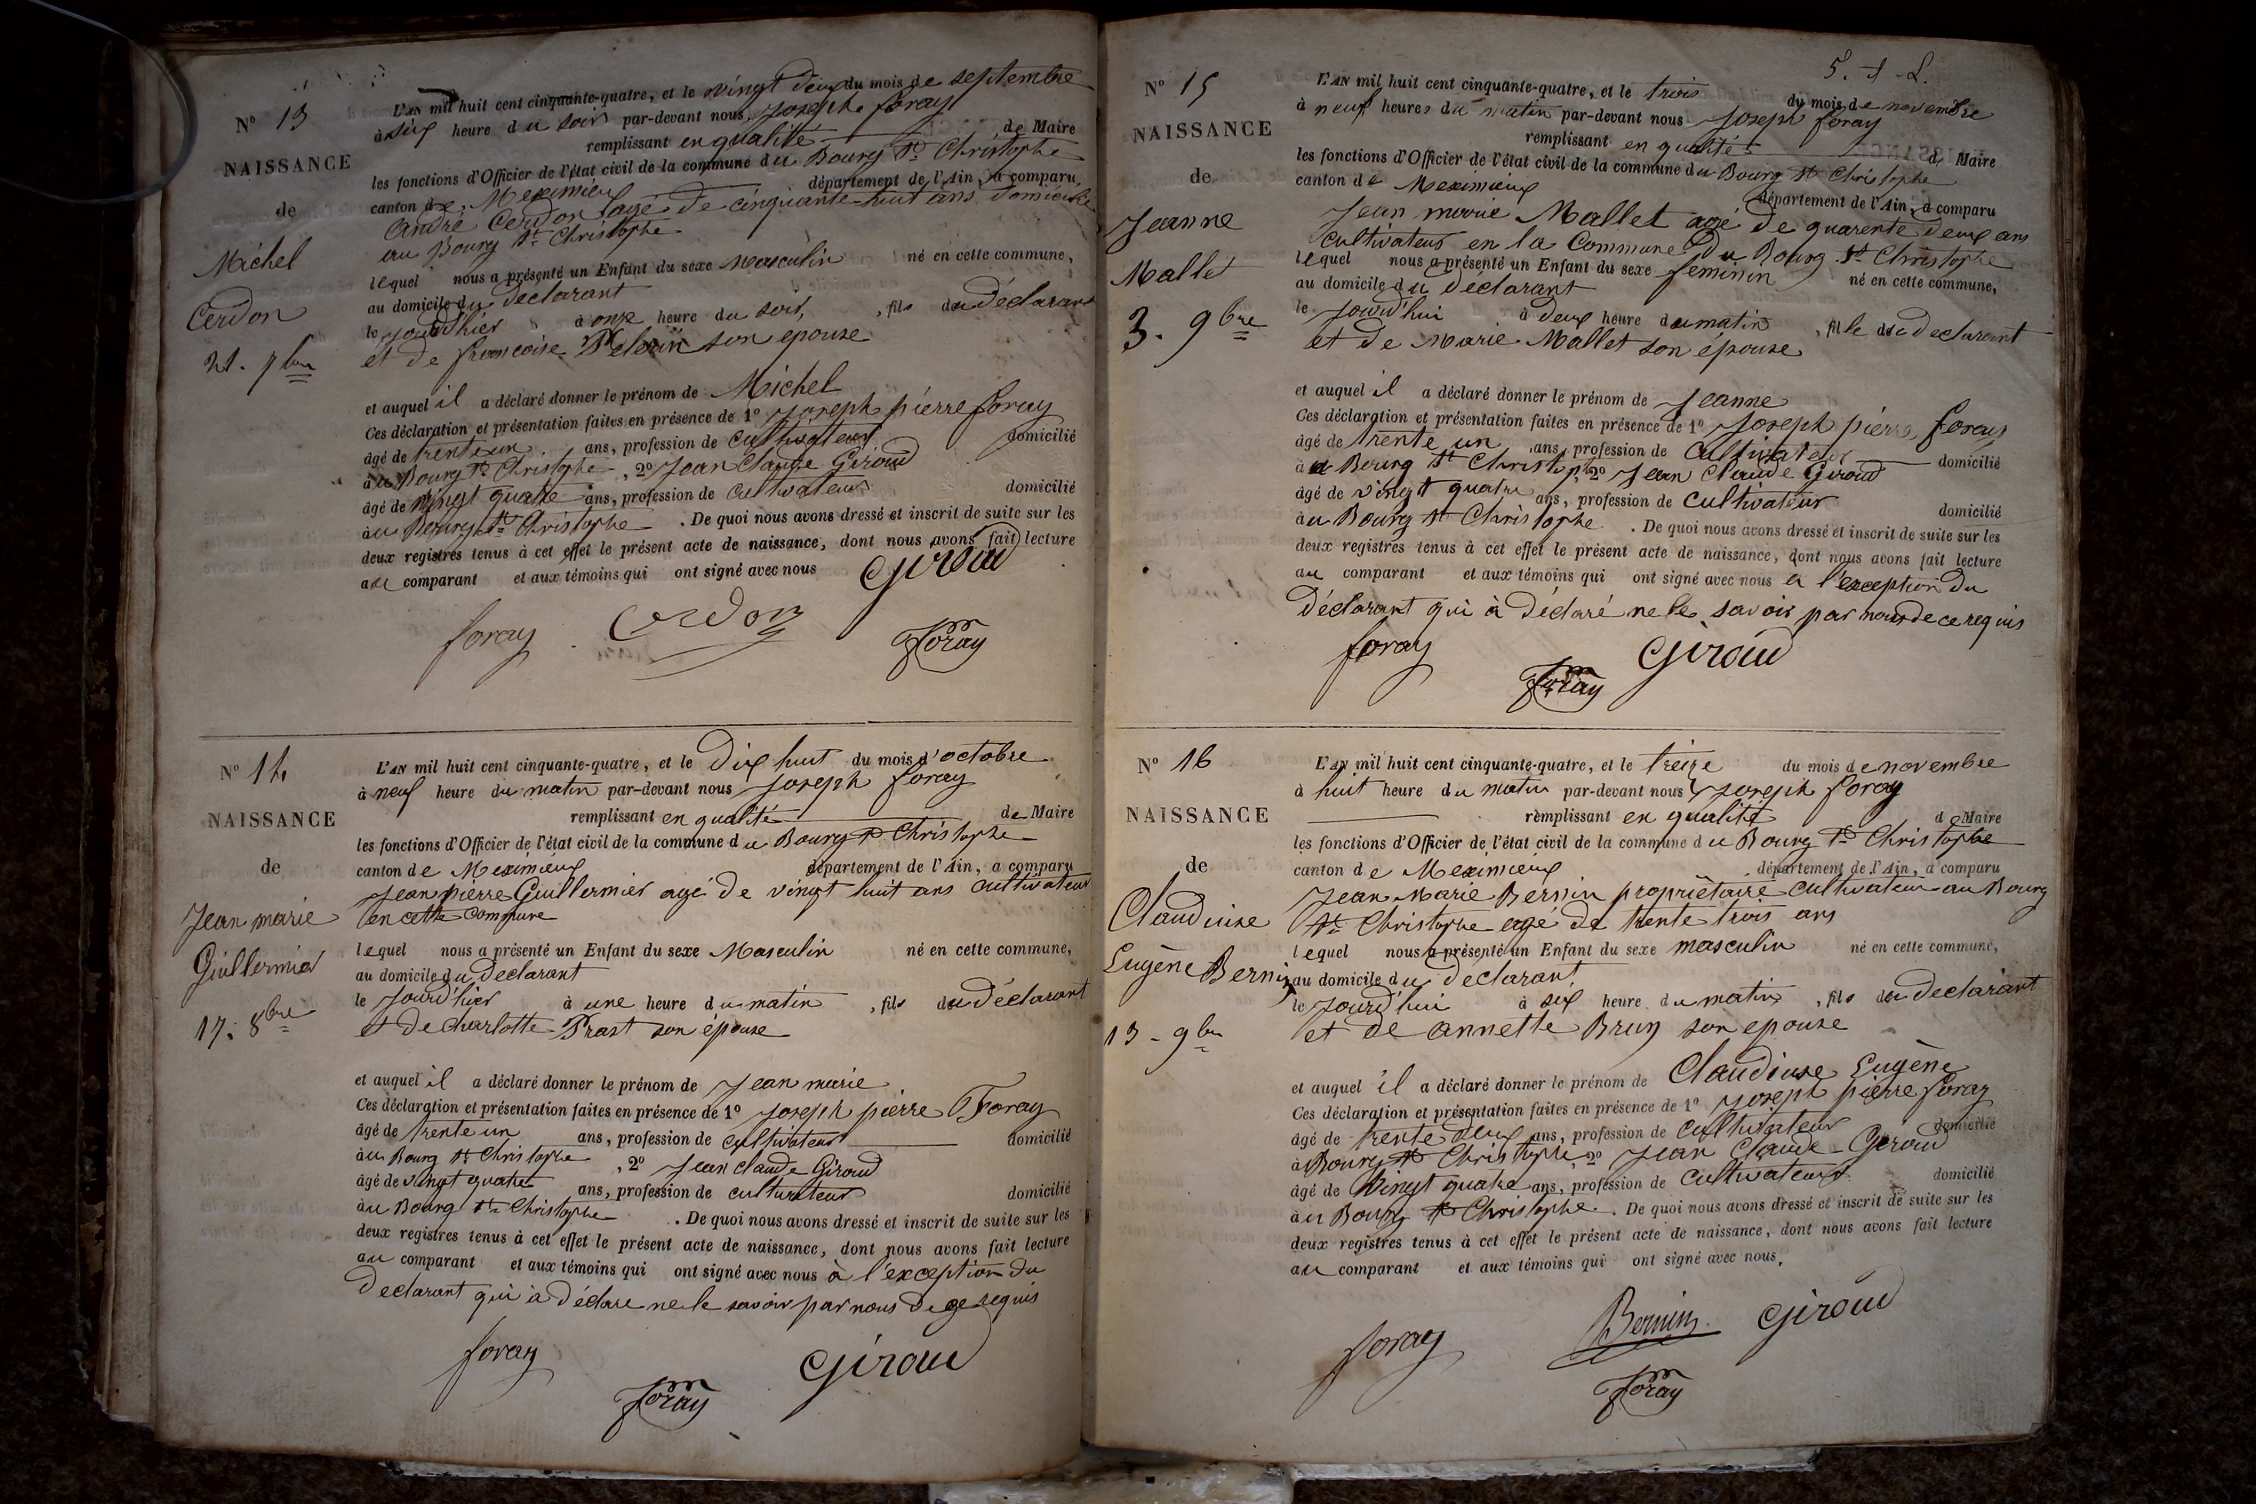 N° 13
NAISSANCE
de
Michel
Cerdon
21. 7bre
L'AN mil huit cent cinquante-quatre, et le vingt deux du mois de septembre
à six heure du soir par-devant nous Joseph foray
remplissant en qualité de Maire
les fonctions d'Officier de l'état civil de la commune du Bourg St Christophe
canton de Meximieux département de l'Ain, a comparu
André Cerdon agé de cinquante-huit ans, domicilié
au Bourg St Christophe
lequel nous a présenté un Enfant du sexe Masculin né en cette commune,
au domicile du declarant
le jourd'hier à onze heure du soir, fils du déclarant
et de francoise son epouse
et auquel il a déclaré donner le prénom de Michel
Ces déclaration et présentation faites en présence de 1° Joseph pierre foray
âgé de trente un ans, profession de cultivateur domicilié
au Bourg St Christophe, 2° Jean Claude Giroud
âgé de vingt quatre ans, profession de cultivateur domicilié
au Bourg St Christophe. De quoi nous avons dressé et inscrit de suite sur les
deux registres tenus à cet effet le présent acte de naissance, dont nous avons fait lecture
au comparant et aux témoins qui ont signé avec nous Giroud
foray Cerdon Foray
N° 14
NAISSANCE
de
Jean marie
Guillermier
17. 8bre
L'AN mil huit cent cinquante-quatre, et le Dix huit du mois d'octobre
à neuf heure du matin par-devant nous Joseph foray
remplissant en qualité de Maire
les fonctions d'Officier de l'état civil de la commune du Bourg St Christophe
canton de Meximieux département de l'Ain, a comparu
Jean pierre Guillermier agé de vingt huit ans cultivateur
en cette commune
lequel nous a présenté un Enfant du sexe Masculin né en cette commune,
au domicile du declarant
le jourd'hier à une heure du matin, fils du déclarant
et de charlotte Prost son épouse
et auquel il a déclaré donner le prénom de Jean marie
Ces déclaration et présentation faites en présence de 1° Joseph pierre Foray
âgé de trente un ans, profession de cultivateur domicilié
au Bourg St Christophe, 2° Jean claude Giroud
âgé de vingt quatre ans, profession de cultivateur domicilié
au Bourg St Christophe. De quoi nous avons dressé et inscrit de suite sur les
deux registres tenus à cet effet le présent acte de naissance, dont nous avons fait lecture
au comparant et aux témoins qui ont signé avec nous à l'exception du
declarant qui à déclare ne le savoir par nous de ce requis
foray Giroud
Foray
N° 15
NAISSANCE
de
Jeanne
Mallet
3. 9bre
L'AN mil huit cent cinquante-quatre, et le trois du mois de novembre
à neuf heures du matin par-devant nous Joseph foray
remplissant en qualité d Maire
les fonctions d'Officier de l'état civil de la commune du Bourg St Christophe
canton de Meximieux département de l'Ain, a comparu
Jean marie Mallet agé de quarente deux ans
cultivateur en la Commune du Bourg St Christophe
lequel nous a présenté un Enfant du sexe feminin né en cette commune,
au domicile du déclarant
le jourd'hui à deux heure du matin, fille du declarant
et de marie Mallet son épouse
et auquel il a déclaré donner le prénom de Jeanne
Ces déclaration et présentation faites en présence de 1° Joseph pierre foray
âgé de trente un ans, profession de cultivateur domicilié
au Bourg St Christophe, 2° Jean Claude Giroud
âgé de vingt quatre ans, profession de cultivateur domicilié
au Bourg St Christophe. De quoi nous avons dressé et inscrit de suite sur les
deux registres tenus à cet effet le présent acte de naissance, dont nous avons fait lecture
au comparant et aux témoins qui ont signé avec nous à l'exception du
déclarant qui à déclaré ne le savoir par nous de ce requis
foray Giroud
Foray
N° 16
NAISSANCE
de
Claudiuse
Eugène Bernin
13 - 9bre
L'AN mil huit cent cinquante-quatre, et le treize du mois de novembre
à huit heure du matin par-devant nous Joseph foray
remplissant en qualité d Maire
les fonctions d'Officier de l'état civil de la commune du Bourg St Christophe
canton de Meximieux département de l'Ain, a comparu
Jean Marie Bernin propriètaire cultivateur au Bourg
St Christophe agé de trente trois ans
lequel nous a présenté un Enfant du sexe masculin né en cette commune,
au domicile du declarant,
le jourd'hui à six heure du matin, fils du declarant
et de annette Brun son epouse
et auquel il a déclaré donner le prénom de Claudiuse Eugène
Ces déclaration et présentation faites en présence de 1° Joseph pierre foray
âgé de trente deux ans, profession de cultivateur domicilié
à Bourg St Christophe, 2° Jean Claude Giroud
âgé de vingt quatre ans, profession de cultivateur domicilié
au Bourg St Christophe. De quoi nous avons dressé et inscrit de suite sur les
deux registres tenus à cet effet le présent acte de naissance, dont nous avons fait lecture
au comparant et aux témoins qui ont signé avec nous,
foray Bernin Giroud
Foray